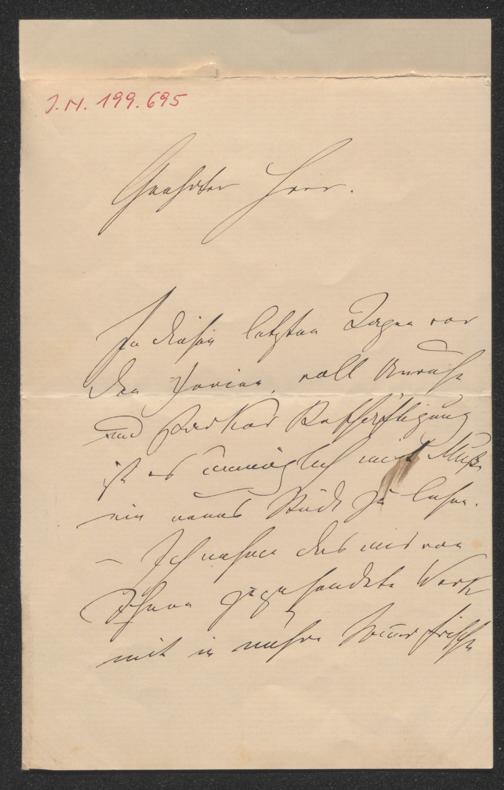 J.N. 199.695
Geehrter Herr.
In diesen letzten Tagen vor
den Ferien, voll Unruhe
und starker Beschäftigung
ist es unmöglich mit Muße
ein neues Stück zu lesen.
– Ich nehme das mir von
Ihnen zugesandte Werk
mit in meine Som̄erfrische